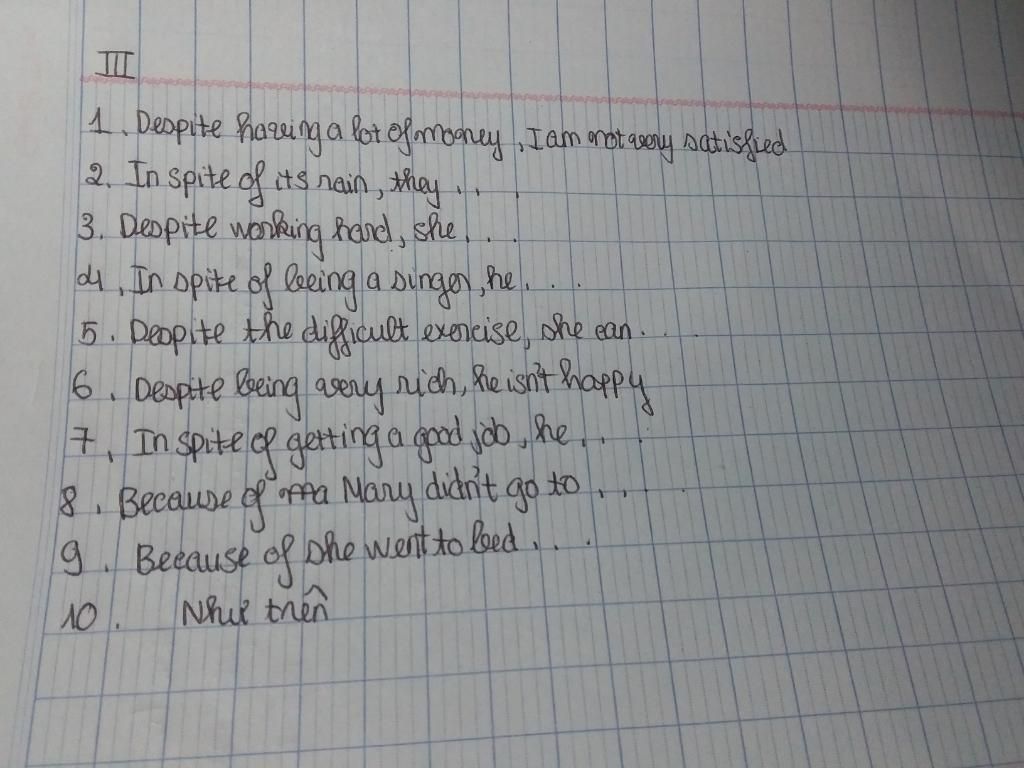 III
1. Despite having a lot of money, I am not very satisfied
2. In spite of its rain, they...
3. Despite working hard, she...
4. In spite of being a singer, he...
5. Despite the difficult exercise, she can...
6. Despite being very rich, he isn't happy
7. In spite of getting a good job, he...
8. Because of Mary didn't go to...
9. Because of she went to bed...
10. Như trên